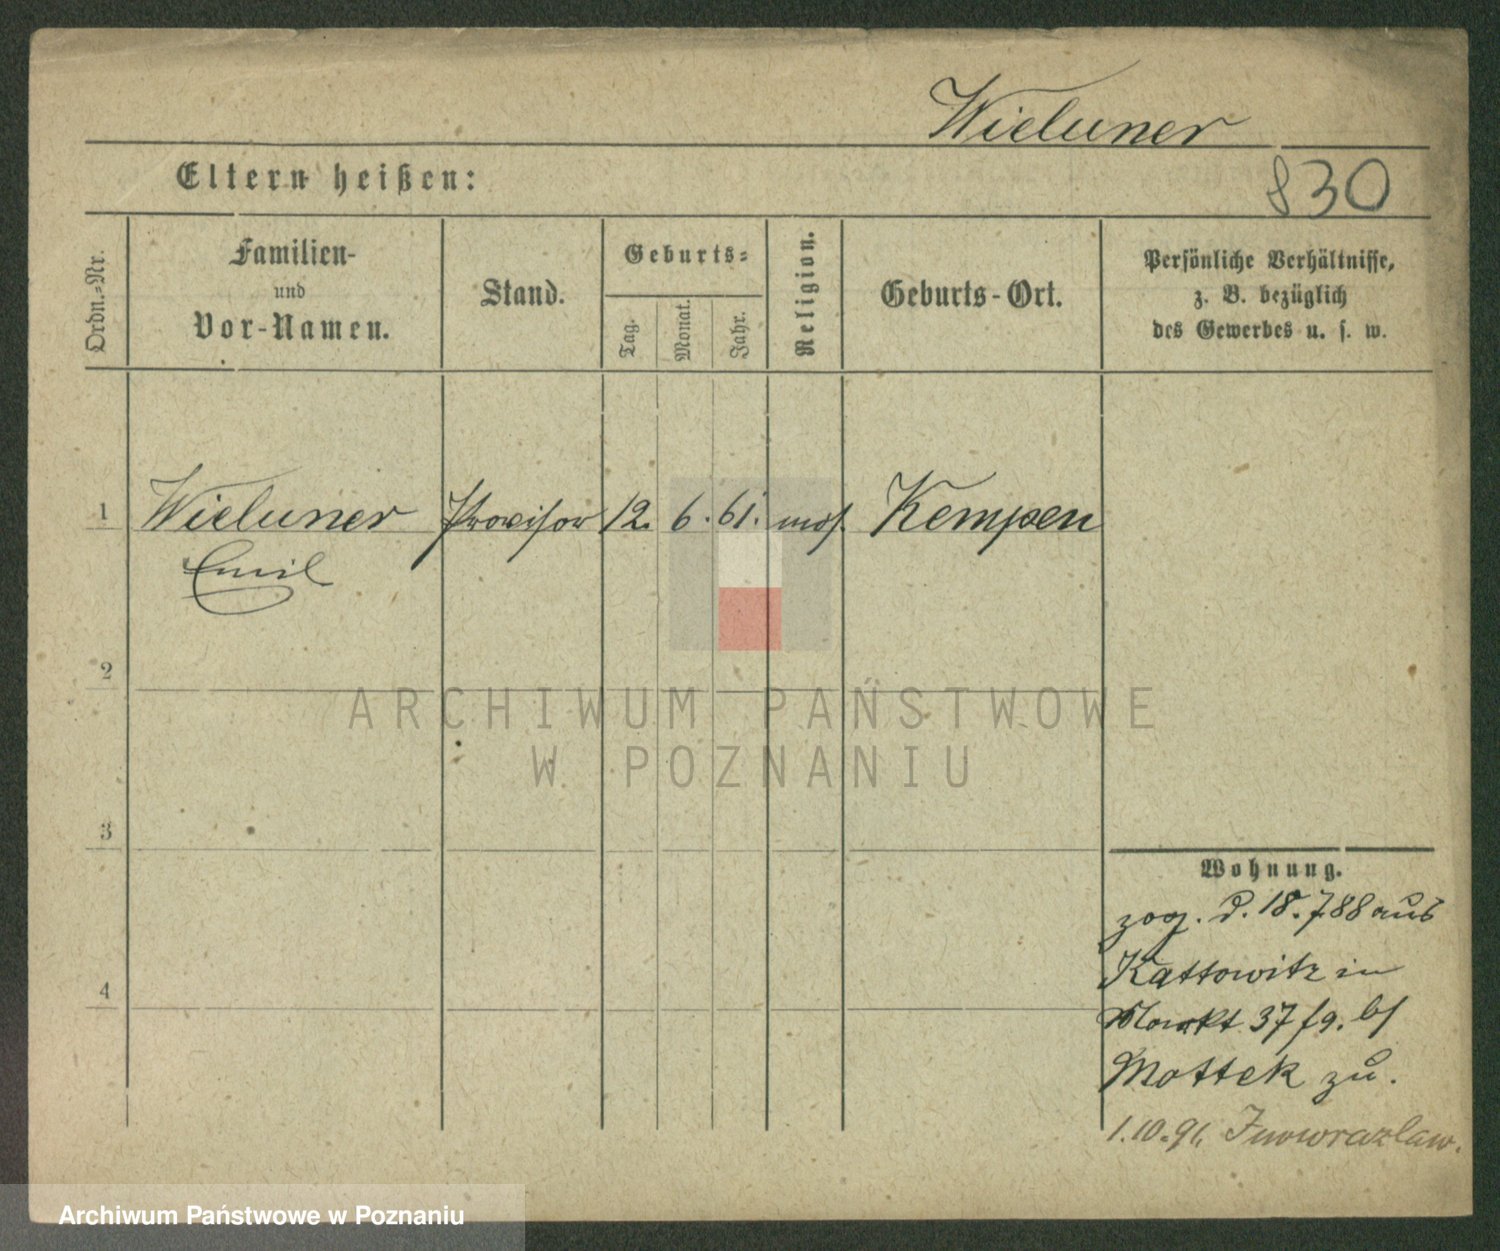 Wieluner
Eltern heißen:
830
Ordn.-Nr.
Familien-
und
Vor-Namen.
Stand.
Geburts-
Tag.
Monat.
Jahr.
Religion.
Geburts-Ort.
Persönliche Verhältnisse,
z. B. bezüglich
des Gewerbes u. s. w.
1 Wieluner Provisor 12. 6. 61. mos. Kempen
Emil
2
3
4
ARCHIWUM PAŃSTWOWE
W POZNANIU
Wohnung.
zog. d. 18. 7 88 aus
Kattowitz in
Markt 37
Mottek zu.
1.10.91. Inowrazlaw.
Archiwum Państwowe w Poznaniu